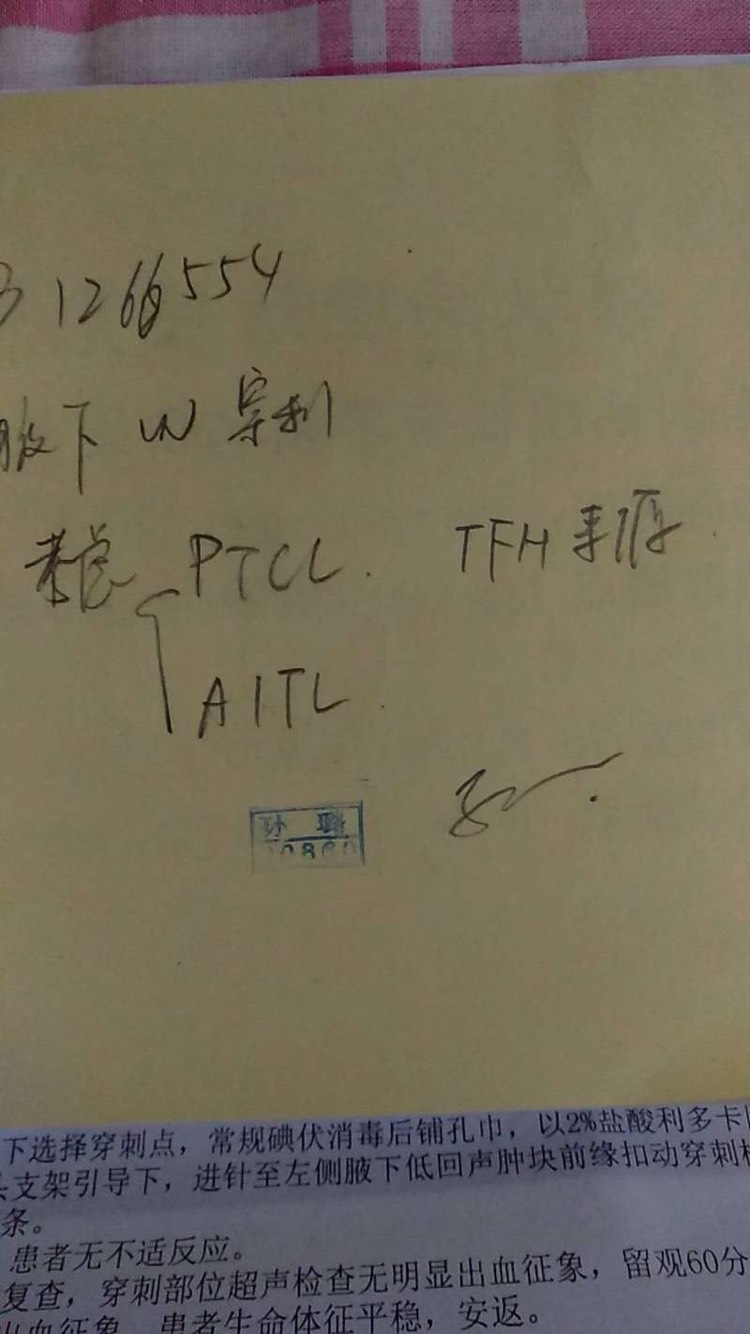 1266554
腋下 LN 穿刺
考虑 PTCL. TFH来源
AITL
孙
下选择穿刺点，常规碘伏消毒后铺孔巾，以2%盐酸利多卡
支架引导下，进针至左侧腋下低回声肿块前缘扣动穿刺
条。
患者无不适反应。
复查，穿刺部位超声检查无明显出血征象，留观60分
出血征象，患者生命体征平稳，安返。